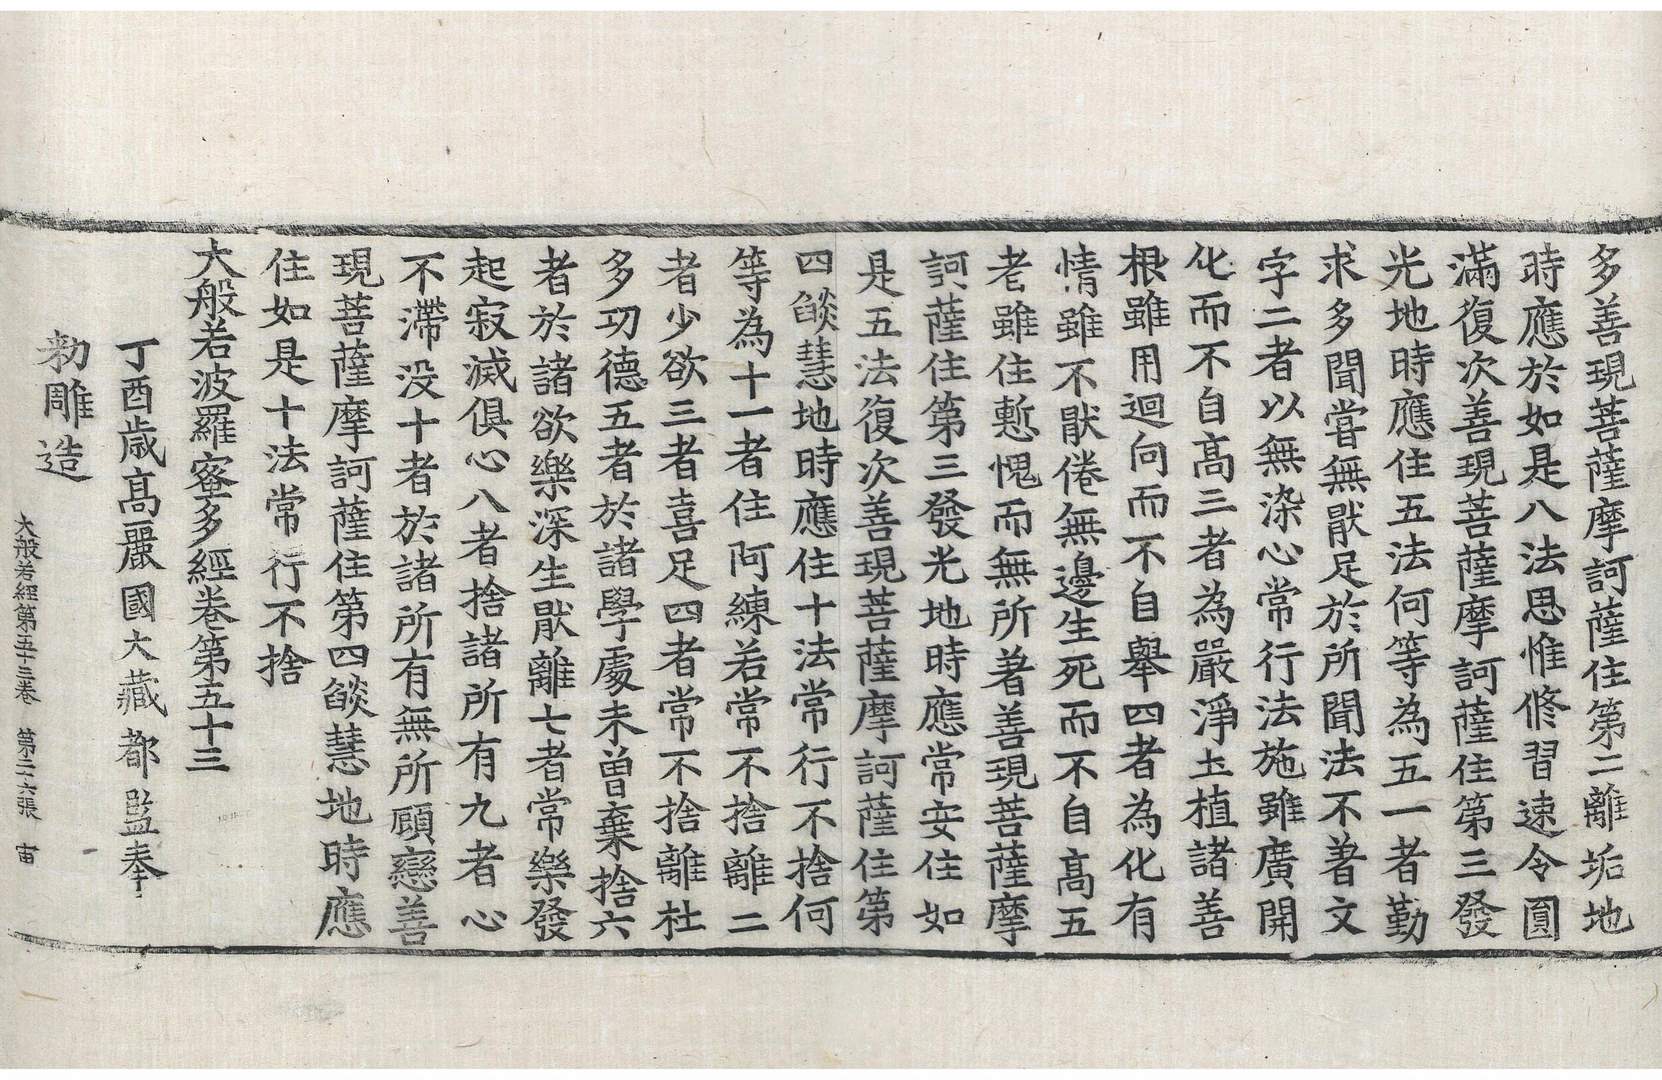 多善現菩薩摩訶薩住第二離垢地
時應於如是八法思惟修習速令圓
滿復次善現菩薩摩訶薩住第三發
光地時應住五法何等為五一者勤
求多聞甞無猒足於所聞法不著文
字二者以無染心常行法施雖廣開
化而不自高三者為嚴淨土植諸善
根雖用迴向而不自舉四者為化有
情雖不猒倦無邊生死而不自高五
者雖住慙愧而無所著善現菩薩摩
訶薩住第三發光地時應常安住如
是五法復次善現菩薩摩訶薩住第
四燄慧地時應住十法常行不捨何
等為十一者住阿練若常不捨離二
者少欲三者喜足四者常不捨離杜
多功德五者於諸學處未曾棄捨六
者於諸欲樂深生猒離七者常樂發
起寂滅俱心八者捨諸所有九者心
不滯没十者於諸所有無所顧戀善
現菩薩摩訶薩住第四燄慧地時應
住如是十法常行不捨
大般若波羅蜜多經卷第五十三
丁酉歳髙麗國大藏都監奉
勑雕造
大般若經第五十三卷 第二六張 宙